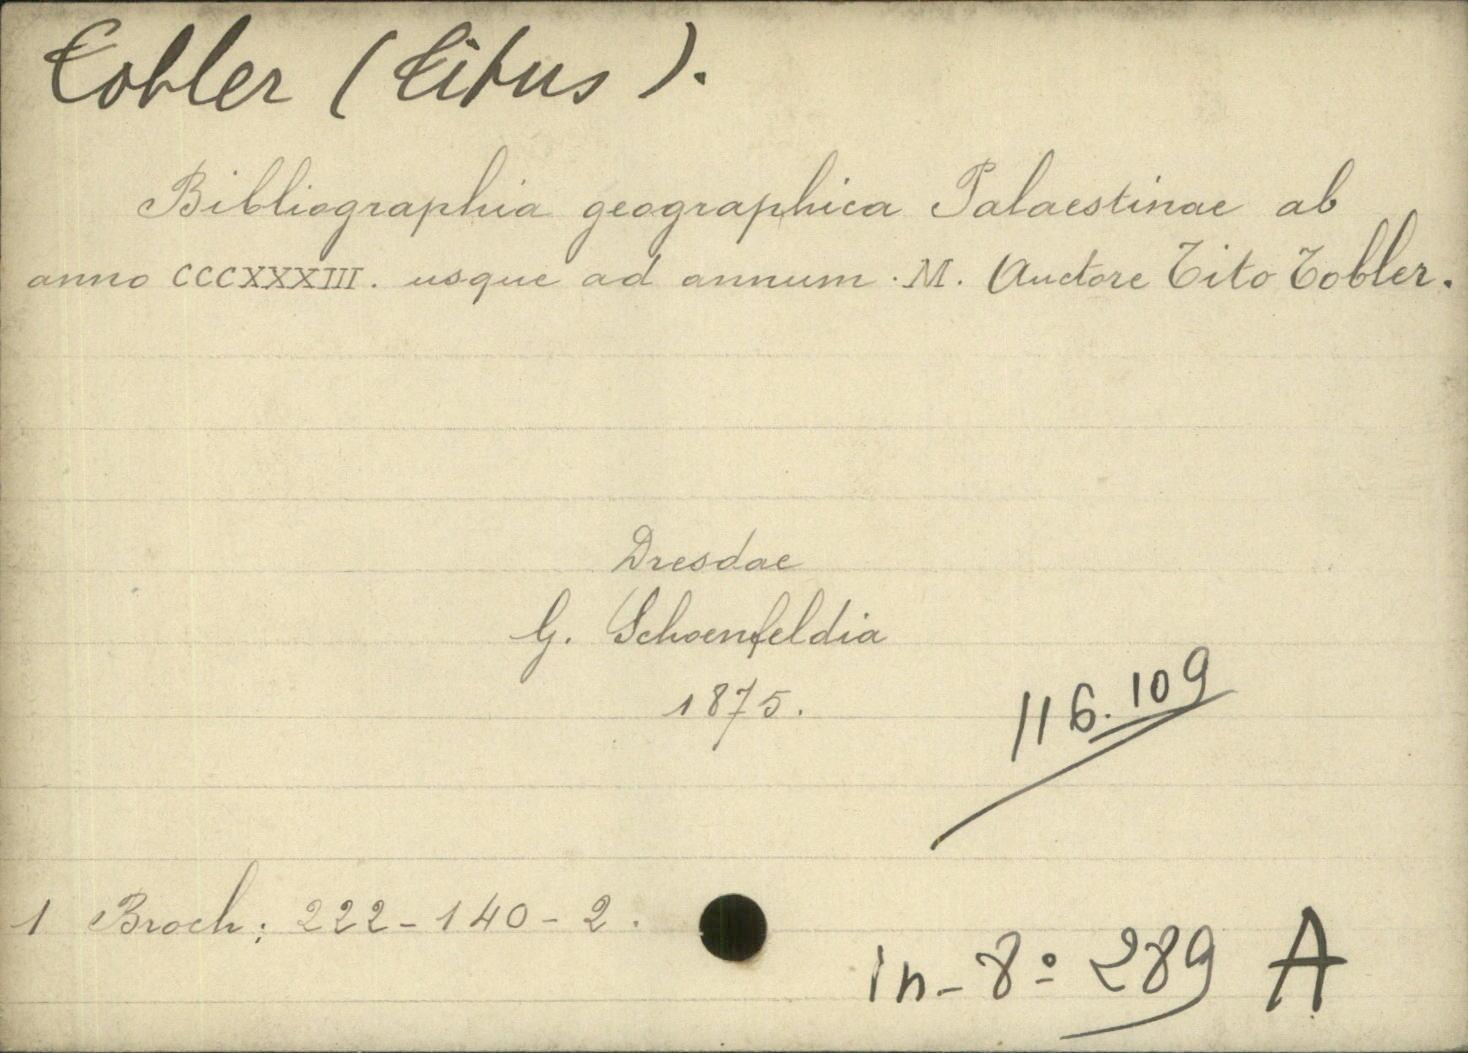 Tobler (Titus).
Bibliographia geographica Palaestinae ab
anno CCCXXXIII. usque ad annum M. Auctore Tito Tobler.
Dresdae
G. Schoenfeldia
1875.
116.109
1 Broch: 222-140-2.
in-8º 289 A